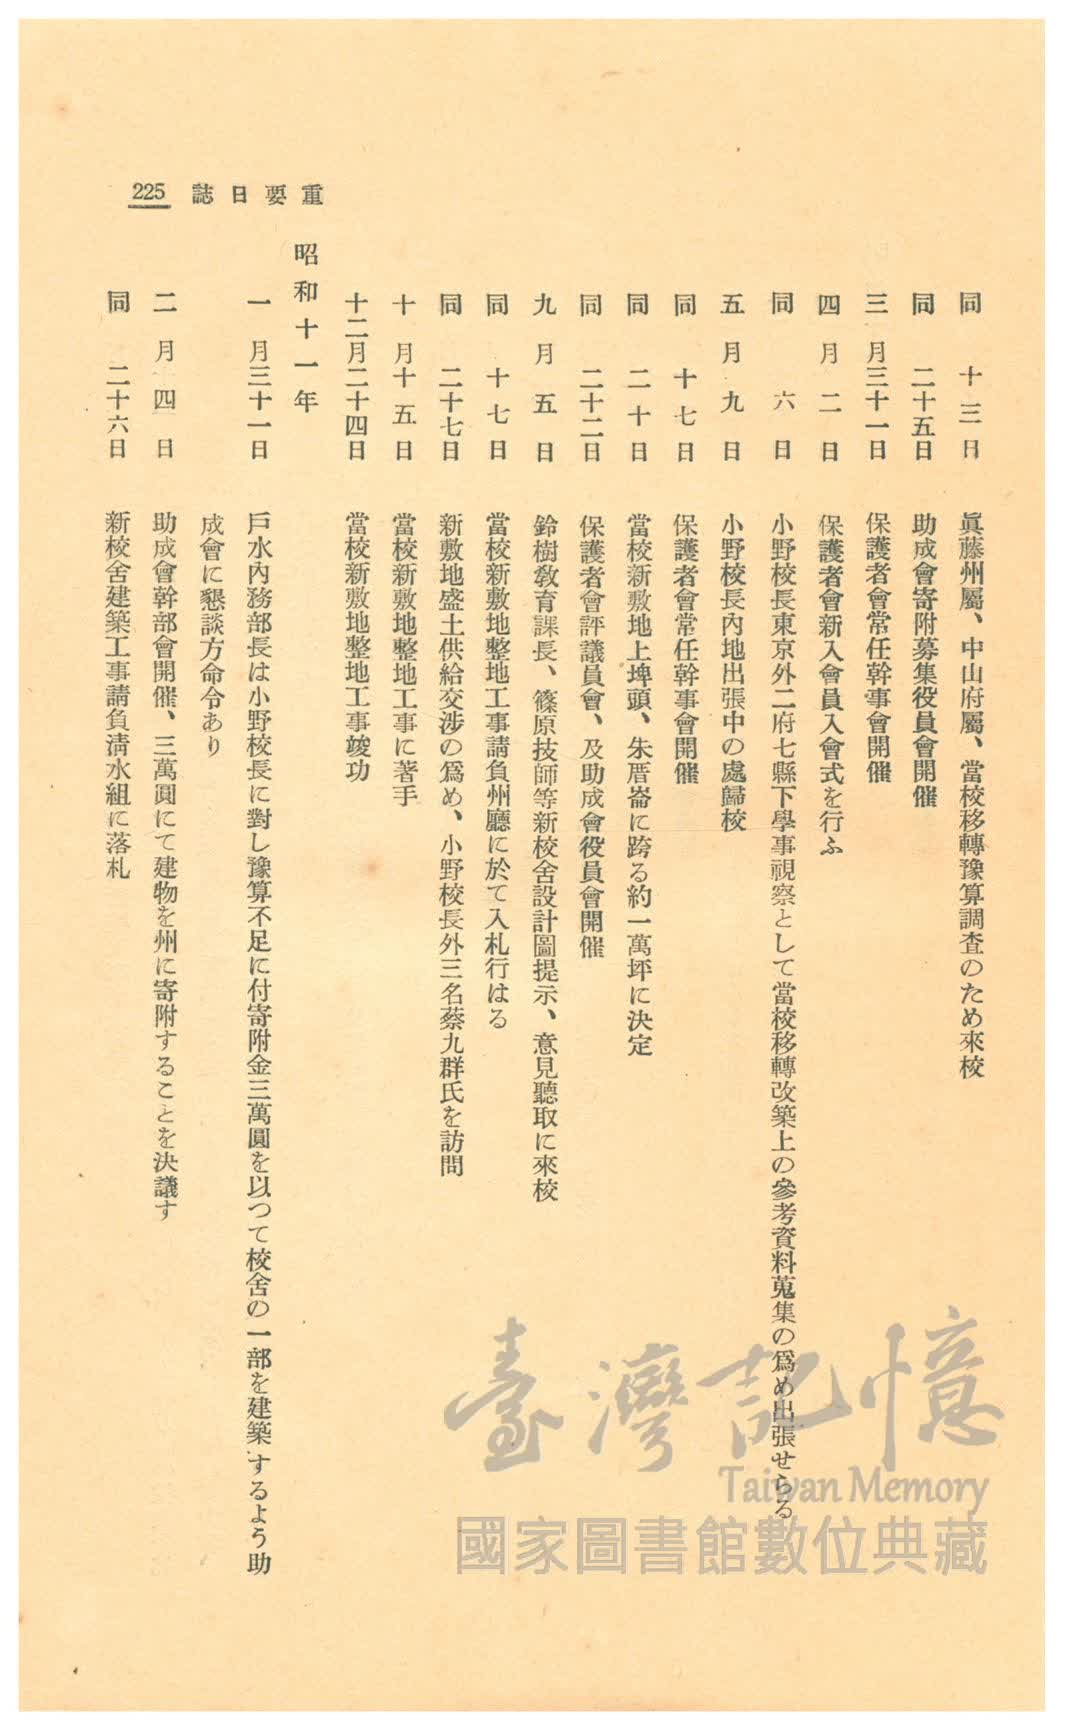 重要日誌 225
同 十三日 眞藤州屬、中山府屬、當校移轉豫算調査のため來校
同 二十五日 助成會寄附募集役員會開催
三月三十一日 保護者會常任幹事會開催
四月二日 保護者會新入會員入會式を行ふ
同 六日 小野校長東京外二府七縣下學事視察として當校移轉改築上の參考資料蒐集の爲め出張せらる
五月九日 小野校長內地出張中の處歸校
同 十七日 保護者會常任幹事會開催
同 二十日 當校新敷地上埤頭、朱厝崙に跨る約一萬坪に決定
同 二十二日 保護者會評議員會、及助成會役員會開催
九月五日 鈴樹敎育課長、篠原技師等新校舍設計圖提示、意見聽取に來校
同 十七日 當校新敷地整地工事請負州廳に於て入札行はる
同 二十七日 新敷地盛土供給交涉の爲め、小野校長外三名蔡九群氏を訪問
十月十五日 當校新敷地整地工事に著手
十二月二十四日 當校新敷地整地工事竣功
昭和十一年
一月三十一日 戶水內務部長は小野校長に對し豫算不足に付寄附金三萬圓を以つて校舍の一部を建築するよう助
成會に懇談方命令あり
二月四日 助成會幹部會開催、三萬圓にて建物を州に寄附することを決議す
同 二十六日 新校舍建築工事請負淸水組に落札
臺灣記憶
Taiwan Memory
國家圖書館數位典藏